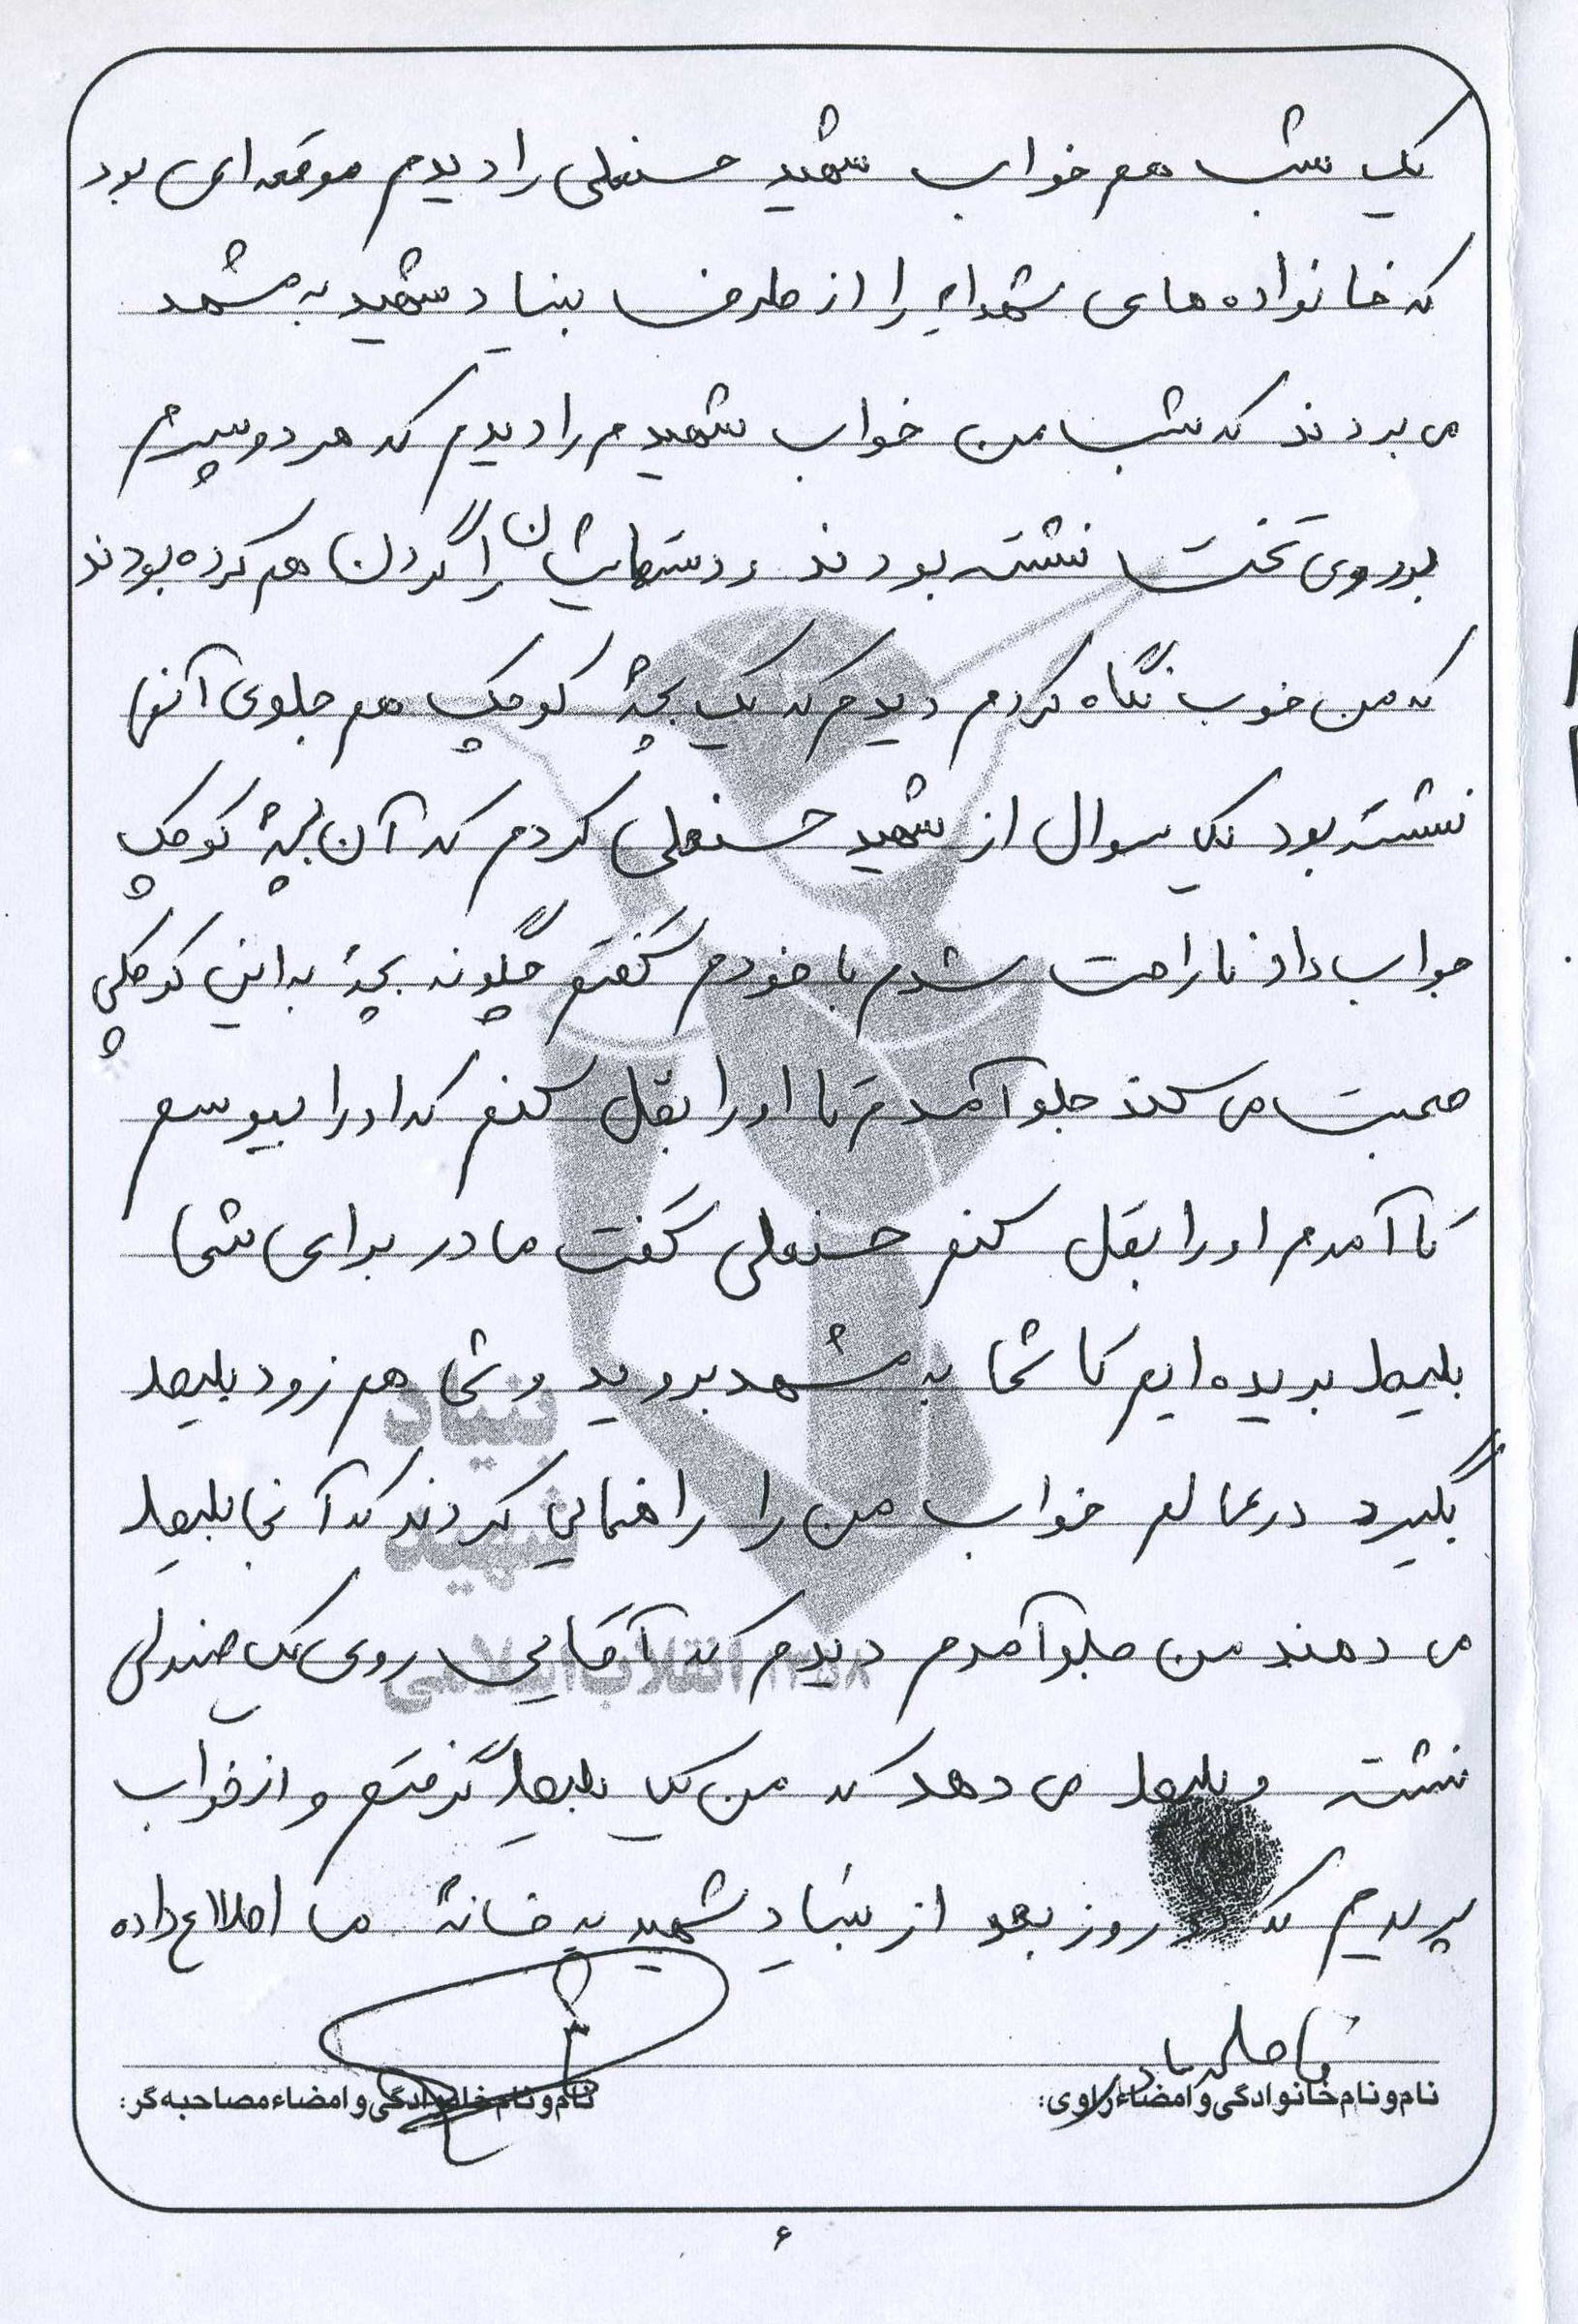 یک شب هم خواب شهید حسنعلی را دیدم موقعه ای بود
که خانواده های شهدای را از طرف بنیاد شهید به مشهد
می بردند که شب من خواب شهیدم را دیدم که هر دو پسرم
بر روی تخت نشته بودند و دستهایشان را گردن هم کرده بودند
که من خوب نگاه کردم دیدم که یک بچۀ کوچک هم جلوی آنها
نشسته بود یک سوال از شهید حسنعلی کردم که آن بچۀ کوچک
جواب داد ناراحت شدم با خودم گفتم چگونه بچۀ به این کوچکی
صحبت می کند جلو آمدم تا او را بقل کنم که او را ببوسم
تا آمدم او را بقل کنم حسنعلی گفت مادر برای شما
بلیط بریده ایم تا شما به مشهد بروید و شما هم زود بلیط
بگیرد در عالم خواب من را راهنمایی کردند که آنجا بلیط
می دهند من جلو آمدم دیدم که آقایی روی یک صندلی
نشته و بلیط می دهد که من یک بلیط گرفتم و از خواب
پریدم که دو روز بعد از بنیاد شهید به خانۀ ما اطلاع داده
نام و نام خانوادگی و امضاء راوی:
نام و نام خانوادگی و امضاء مصاحبه گر:
۶
بنیاد
شهید
انقلاب اسلامی ۱۳۵۸